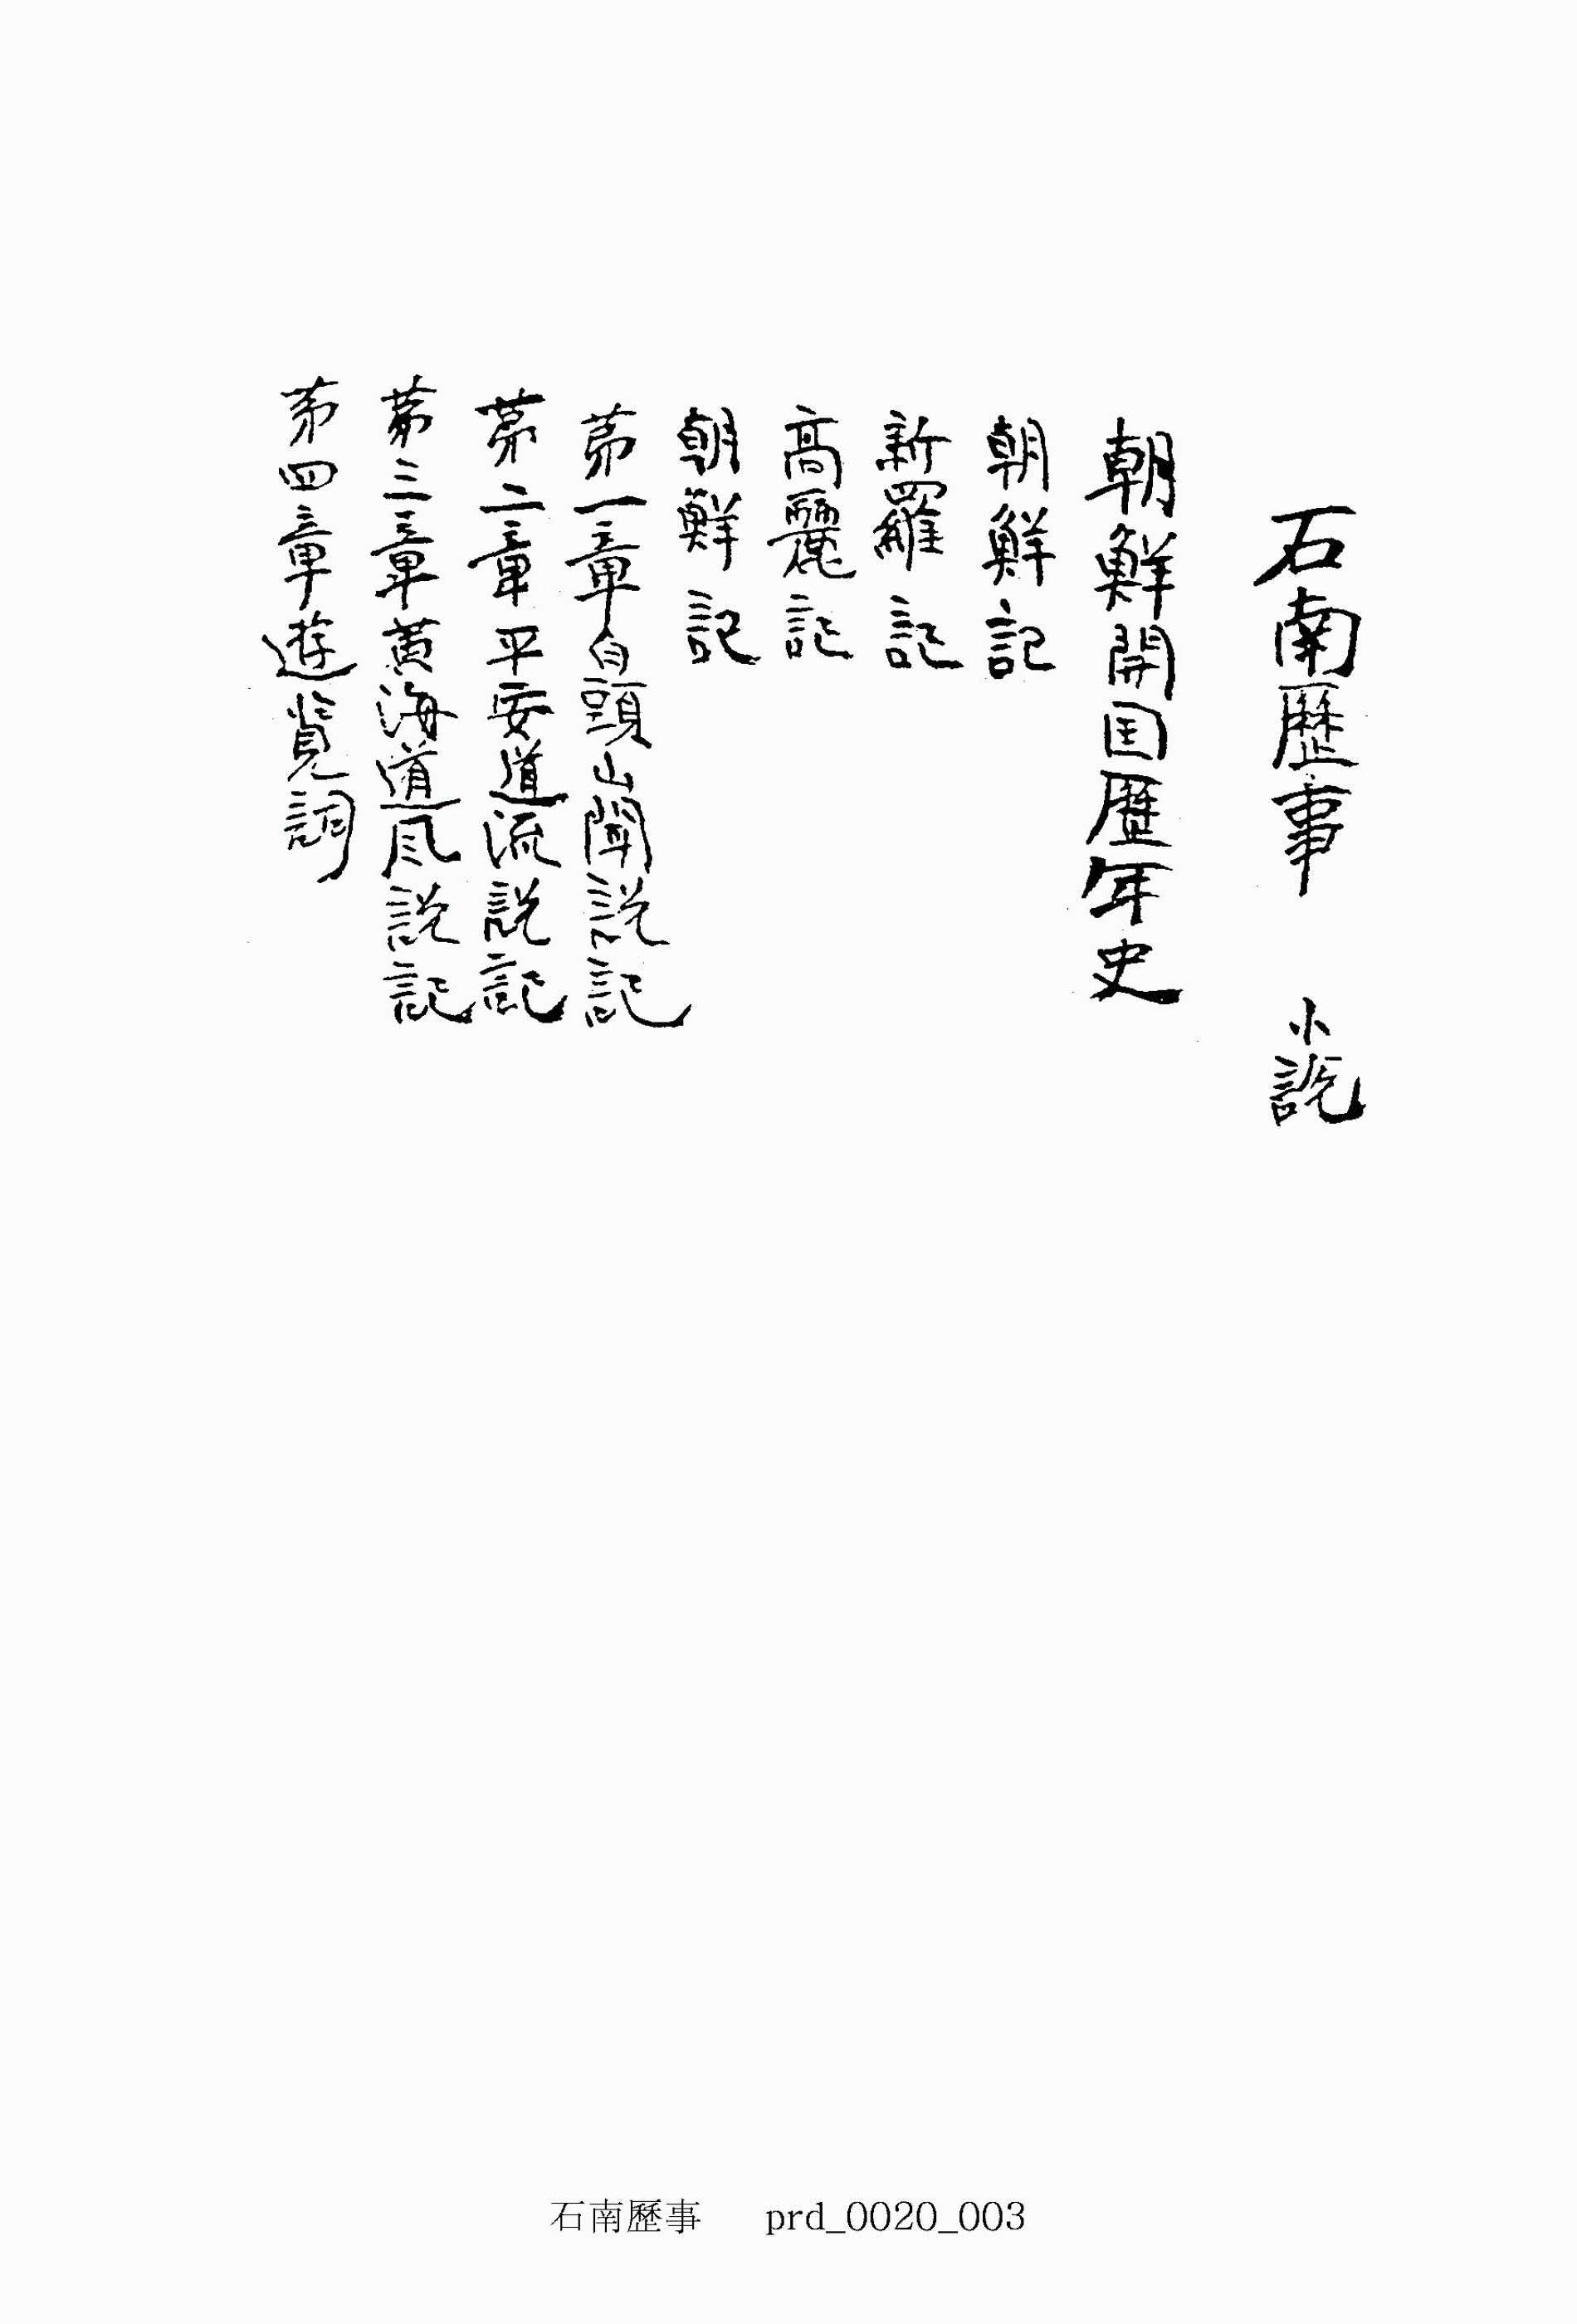 石南歷事　小説
朝鮮開国歷年史
朝鮮記
新羅記
高麗記
朝鮮記
苐一章白頭山聞説記
苐二章平安道流説記
苐三章黄海道風説記
苐四章遊覧詞
石南歷事　prd_0020_003